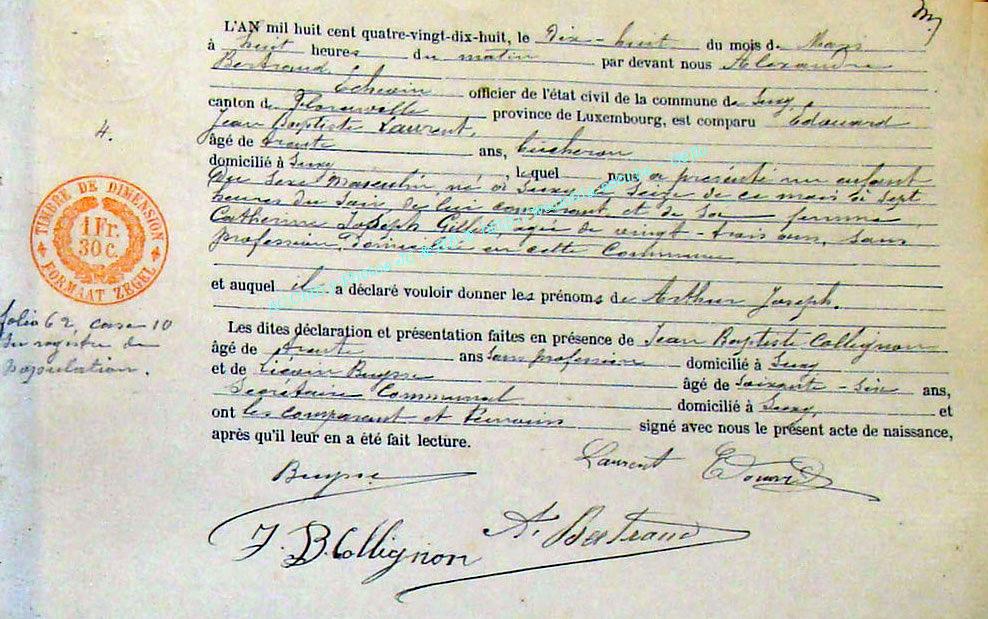 L'AN mil huit cent quatre-vingt-dix-huit, le Dix-huit du mois de Mars
à huit heures du matin par devant nous Alexandre
Bertrand
Echevin officier de l'état civil de la commune de Suxy
canton de Florenville province de Luxembourg, est comparu Edouard
Jean Baptiste Laurent,
âgé de trente ans, bucheron
domicilié à Suxy, lequel nous a présenté un enfant
Du Sexe Masculin, né à Suxy, le Seize de ce mois à Sept
heures du Soir de lui comparant et de Sa femme
Catherine Joseph Gillet agée de vingt-trois ans, Sans
profession Domiciliée en cette Commune
et auquel il a déclaré vouloir donner les prénoms de Arthur Joseph.
Les dites déclaration et présentation faites en présence de Jean Baptiste Collignon
âgé de trente ans Sans profession domicilié à Suxy
et de Liévin Buysse âgé de Soixante-Six ans,
Secrétaire Communal domicilié à Suxy, et
ont les comparant et témoins signé avec nous le présent acte de naissance,
après qu'il leur en a été fait lecture.
Laurent Edouard
Buysse
J. B. Collignon A. Bertrand
4.
TIMBRE DE DIMENSION
1 Fr.
30 C.
FORMAAT ZEGEL
folio 62, case 10
du registre de
population.